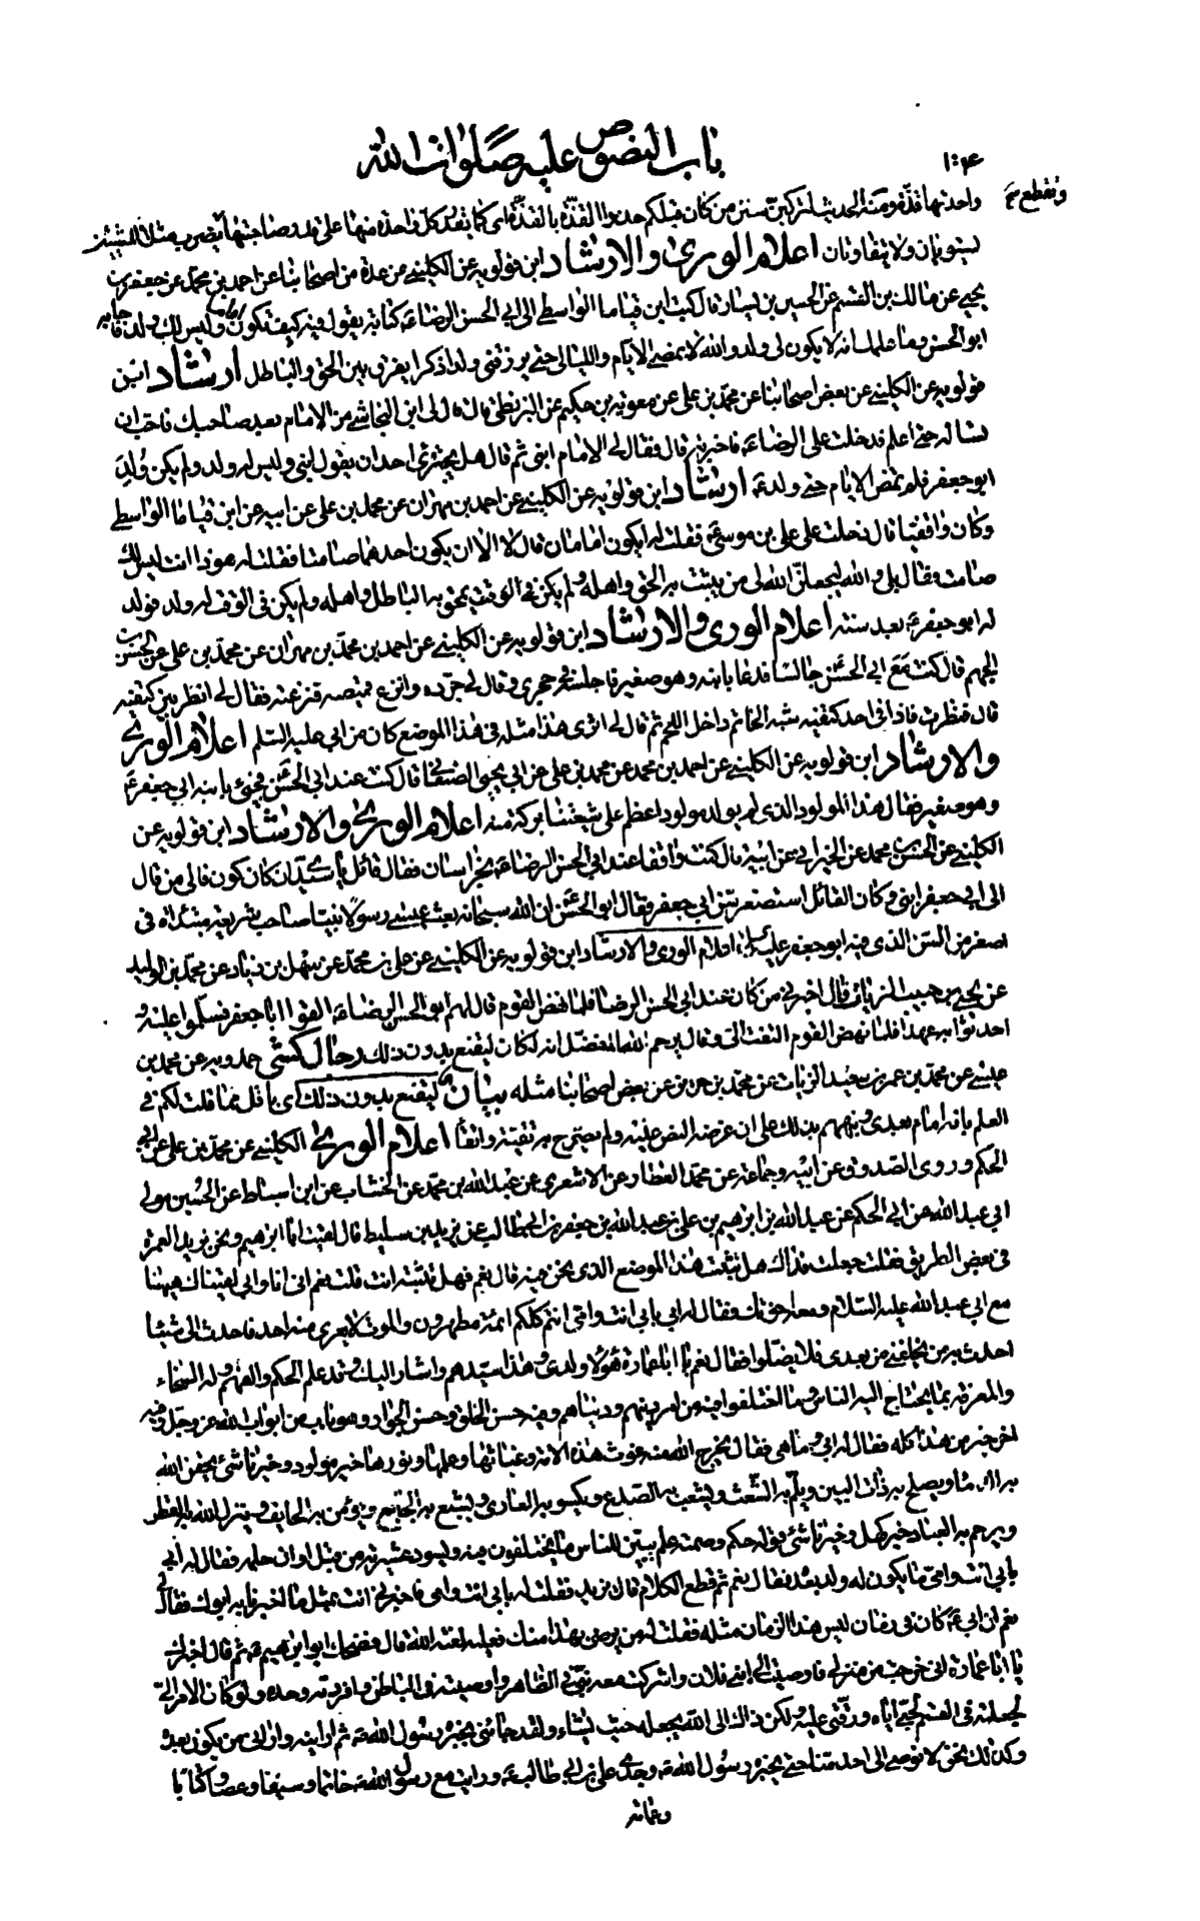 ١٠٤
باب النصوص عليه صلوات الله
وتقطع
واحدتها قذّة ومنه الحديث لتركبنّ سنن من كان قبلكم حذو القذّة بالقذّة اى كما تقدّر كلّ واحدة منها على قدر صاحبتها يضرب مثلا للشيئين
يستويان ولا يتفاوتان اعلام الورى والارشاد ابن قولويه عن الكلينى عن عدة من اصحابنا عن احمد بن محمد عن جعفر بن
يحيى عن مالك بن القسم عن الحسين بن يسار قال كتب ابن قياما الواسطى الى ابى الحسن الرضا ع كتابا يقول فيه كيف تكون اماما وليس لك ولد فاجابه
ابو الحسن وما علمك انه لا يكون لى ولد والله لا يمضى الايام والليالى حتى يرزقنى ولدا ذكرا يفرق بين الحق والباطل ارشاد ابن
قولويه عن الكلينى عن بعض اصحابنا عن محمد بن على عن معوية بن حكيم عن البزنطى قال قال لى ابن النجاشى من الامام بعد صاحبك فاحب ان
تساله حتى اعلم فدخلت على الرضا ع فاخبرته قال فقال لى الامام ابنى ثم قال هل يجترئ احد ان يقول ابنى وليس له ولد ولم يكن ولد
ابو جعفر فلم تمض الايام حتى ولد ع ارشاد ابن قولويه عن الكلينى عن احمد بن مهران عن محمد بن على عن ابيه عن ابن قياما الواسطى
وكان واقفيا قال دخلت على على بن موسى ع فقلت له ايكون امامان قال لا الا ان يكون احدهما صامتا فقلت له هوذا انت ليس لك
صامت فقال بلى والله ليجعلنّ الله لى من يثبت به الحق واهله ولم يكن فى الوقت يمحق به الباطل واهله ولم يكن فى الوقت له ولد فولد
له ابو جعفر ع بعد سنة اعلام الورى والارشاد ابن قولويه عن الكلينى عن احمد بن محمد بن مهران عن محمد بن على عن الحسن بن
الجهم قال كنت مع ابى الحسن جالسا فدعا بابنه وهو صغير فاجلسه فى حجرى وقال لى جرّده وانزع قميصه فنزعته فقال لى انظر بين كتفيه
قال فنظرت فاذا فى احد كتفيه شبه الخاتم داخل اللحم ثم قال لى اترى هذا مثله فى هذا الموضع كان من ابى عليه السلم اعلام الورى
والارشاد ابن قولويه عن الكلينى عن احمد بن محمد عن محمد بن على عن ابى يحيى الصنعانى قال كنت عند ابى الحسن فجئ بابنه ابى جعفر ع
وهو صغير فقال هذا المولود الذى لم يولد مولود اعظم على شيعتنا بركة منه اعلام الورى والارشاد ابن قولويه عن
الكلينى عن الحسين بن محمد عن الخيرانى عن ابيه قال كنت واقفا عند ابى الحسن الرضا ع بخراسان فقال قائل يا سيّدى ان كان كون فالى من قال
الى ابى جعفر ابنى وكان القائل استصغر سنّ ابى جعفر فقال ابو الحسن ان الله سبحانه بعث عيسى رسولا نبيّا صاحب شريعة مبتدأة فى
اصغر من السنّ الذى فيه ابو جعفر عليه السلم اعلام الورى والارشاد ابن قولويه عن الكلينى عن على بن محمد عن سهل بن زياد عن محمد بن الوليد
عن يحيى بن حبيب الزيات قال اخبرنى من كان عند ابى الحسن الرضا فلما نهض القوم قال لهم ابو الحسن الرضا ع القوا ابا جعفر فسلّموا عليه و
احدثوا به عهدا فلما نهض القوم التفت الىّ وقال يرحم الله المفضّل انه لكان ليقنع بدون ذلك رجال كشى حمدويه عن محمد بن
عيسى عن محمد بن عمر بن سعيد الزيات عن محمد بن حريز عن بعض اصحابنا مثله بيان ليقنع بدون ذلك اى باقل مما قلت لكم فى
العلم بانه امام بعدى ونبّههم بذلك على ان غرضه النص عليه ولم يصرّح به تقيّة واتّقاء اعلام الورى الكلينى عن محمد بن على عن ابى
الحكم وروى الصدوق عن ابيه وجماعة عن محمد العطار وعن الاشعرى عن عبدالله بن محمد عن الخشاب عن ابن اسباط عن الحسين مولى
ابى عبدالله عن ابى الحكم عن عبدالله بن ابراهيم بن على بن عبدالله بن جعفر بن ابى طالب عن يزيد بن سليط قال لقيت ابا ابراهيم ونحن نريد العمرة
فى بعض الطريق فقلت جعلت فداك هل تثبت هذا الموضع الذى نحن فيه قال نعم فهل تثبته انت قلت نعم انى انا وابى لقيناك ههنا
مع ابى عبدالله عليه السلام ومعه اخوتك فقال له ابى بابى انت وامى انتم كلكم ائمة مطهرون والموت لا يعرى منه احد فاحدث الى شيئا
احدث به من يخلفنى من بعدى فلا يضلّوا فقال نعم يا ابا عمارة هؤلاء ولدى وهذا سيّدهم واشار اليك وقد علم الحكم والفهم وله السخاء
والمعرفة بما يحتاج اليه الناس وما اختلفوا فيه من امر دينهم ودنياهم وفيه حسن الخلق وحسن الجوار وهو باب من ابواب الله عز وجل وفيه
اخرى خير من هذا كله فقال له ابى وما هى فقال يخرج الله منه غوث هذه الامة وغياثها وعلمها ونورها خير مولود وخير ناشئ يحقن الله
به الدماء ويصلح به ذات البين ويلمّ به الشعث ويشعب به الصدع ويكسو به العارى ويشبع به الجايع ويؤمن به الخايف وينزل الله به القطر
ويرحم به العباد خير كهل وخير ناشئ قوله حكم وصمته علم يبيّن للناس ما يختلفون فيه ويسود عشيرته من قبل اوان حلمه فقال له ابى
بابى انت وامى ما يكون له ولد بعده فقال نعم ثم قطع الكلام قال يزيد فقلت له بابى انت وامى فاخبرنى انت بمثل ما اخبرنا به ابوك فقال لى
نعم ان ابى ع كان فى زمان ليس هذا الزمان مثله فقلت له من يرض بهذا منك فعليه لعنة الله قال فضحك ابو ابراهيم ع ثم قال اخبرك
يا ابا عمارة انى خرجت من منزلى فاوصيت الى ابنى فلان واشركت معه بنىّ فى الظاهر واوصيته فى الباطن وافردته وحده ولو كان الامر الىّ
لجعلته فى القسم لحبّى اياه ورقّتى عليه ولكن ذاك الى الله يجعله حيث يشاء ولقد جائنى بخبره رسول الله ص ثم ارانيه وارانى من يكون بعده
وكذلك نحن لا نوصى الى احد منا حتى يخبره رسول الله ص وجدى على بن ابى طالب ع ورايت مع رسول الله ص خاتما وسيفا وعصا وكتابا
وعمامة